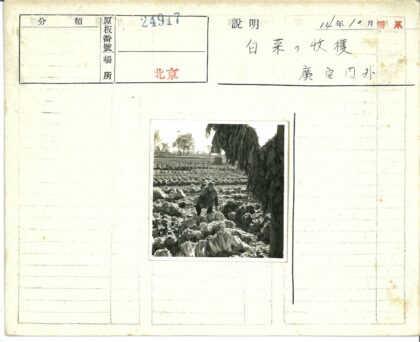 分類
原板番號 24917
場所 北京
説明 14年10月
白菜ノ收穫
廣安門外